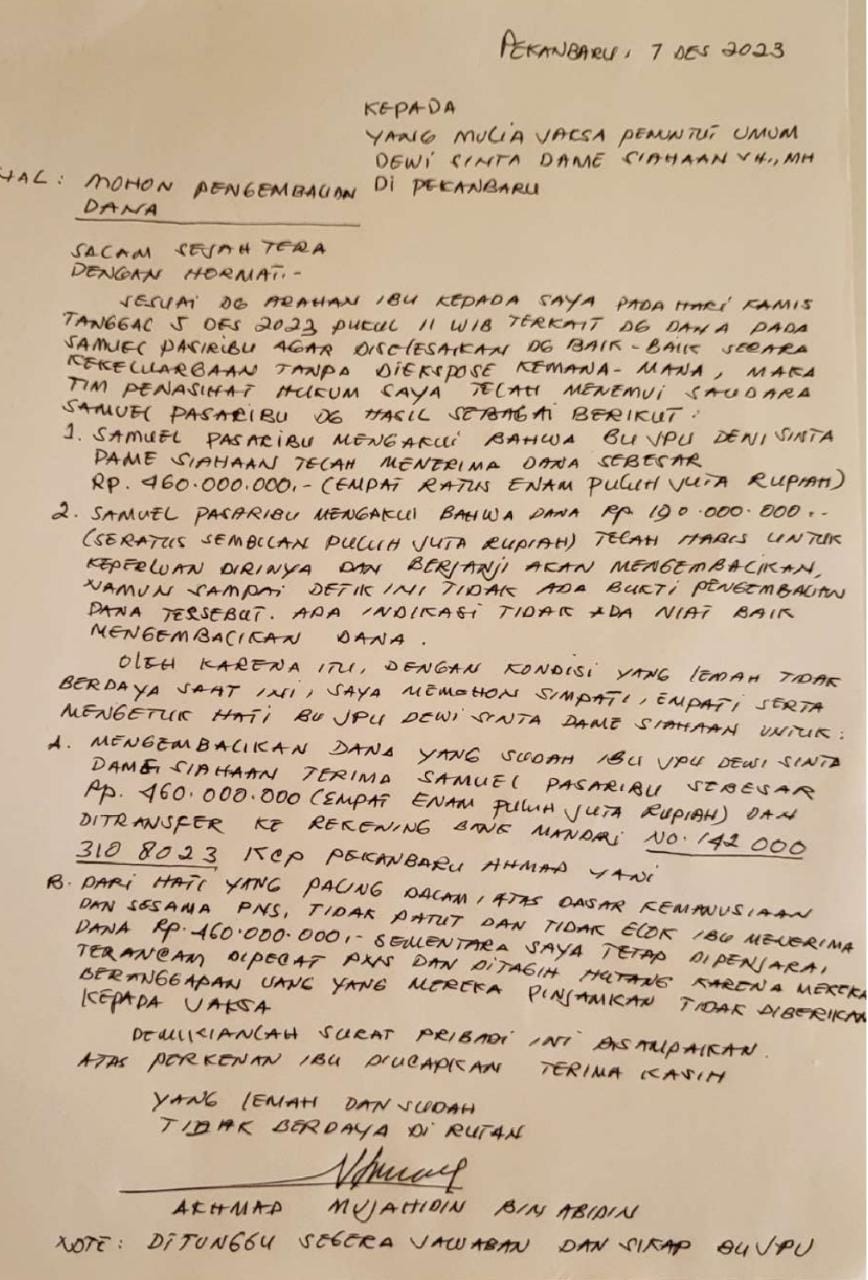 PEKANBARU, 7 DES 2023
KEPADA
YANG MULIA JAKSA PENUNTUT UMUM
DEWI SINTA DAME SIAHAAN SH., MH
HAL : MOHON PENGEMBALIAN DI PEKANBARU
DANA
SALAM SEJAHTERA
DENGAN HORMAT.-
SESUAI DG ARAHAN IBU KEPADA SAYA PADA HARI KAMIS
TANGGAL 5 DES 2023 PUKUL 11 WIB TERKAIT DG DANA PADA
SAMUEL PASIRIBU AGAR DISELESAIKAN DG BAIK-BAIK SECARA
KEKELUARGAAN TANPA DIEKSPOSE KEMANA-MANA, MAKA
TIM PENASIHAT HUKUM SAYA TELAH MENEMUI SAUDARA
SAMUEL PASARIBU DG HASIL SEBAGAI BERIKUT :
1. SAMUEL PASARIBU MENGAKUI BAHWA BU JPU DEWI SINTA
DAME SIAHAAN TELAH MENERIMA DANA SEBESAR
RP. 460.000.000,- (EMPAT RATUS ENAM PULUH JUTA RUPIAH)
2. SAMUEL PASARIBU MENGAKUI BAHWA DANA RP. 190.000.000.-
(SERATUS SEMBILAN PULUH JUTA RUPIAH) TELAH HABIS UNTUK
KEPERLUAN DIRINYA DAN BERJANJI AKAN MENGEMBALIKAN,
NAMUN SAMPAI DETIK INI TIDAK ADA BUKTI PENGEMBALIAN
DANA TERSEBUT. ADA INDIKASI TIDAK ADA NIAT BAIK
MENGEMBALIKAN DANA.
OLEH KARENA ITU, DENGAN KONDISI YANG LEMAH TIDAK
BERDAYA SAAT INI, SAYA MEMOHON SIMPATI, EMPATI SERTA
MENGETUK HATI BU JPU DEWI SINTA DAME SIAHAAN UNTUK :
A. MENGEMBALIKAN DANA YANG SUDAH IBU JPU DEWI SINTA
DAME SIAHAAN TERIMA SAMUEL PASARIBU SEBESAR
Rp. 460.000.000 (EMPAT ENAM PULUH JUTA RUPIAH) DAN
DITRANSFER KE REKENING BANK MANDARI NO. 142 000
310 8023 KCP PEKANBARU AHMAD YANI
B. DARI HATI YANG PALING DALAM, ATAS DASAR KEMANUSIAAN
DAN SESAMA PNS, TIDAK PATUT DAN TIDAK ELOK IBU MENERIMA
DANA RP. 460.000.000,- SEMENTARA SAYA TETAP DIPENJARA,
TERANCAM DIPECAT PNS DAN DITAGIH HUTANG KARENA MEREKA
BERANGGAPAN UANG YANG MEREKA PINJAMKAN TIDAK DIBERIKAN
KEPADA JAKSA
DEMIKIANLAH SURAT PRIBADI INI DISAMPAIKAN.
ATAS PERKENAN IBU DIUCAPKAN TERIMA KASIH
YANG LEMAH DAN SUDAH
TIDAK BERDAYA DI RUTAN
AKHMAD MUJAHIDIN BIN ABIDIN
NOTE : DITUNGGU SEGERA JAWABAN DAN SIKAP BU JPU